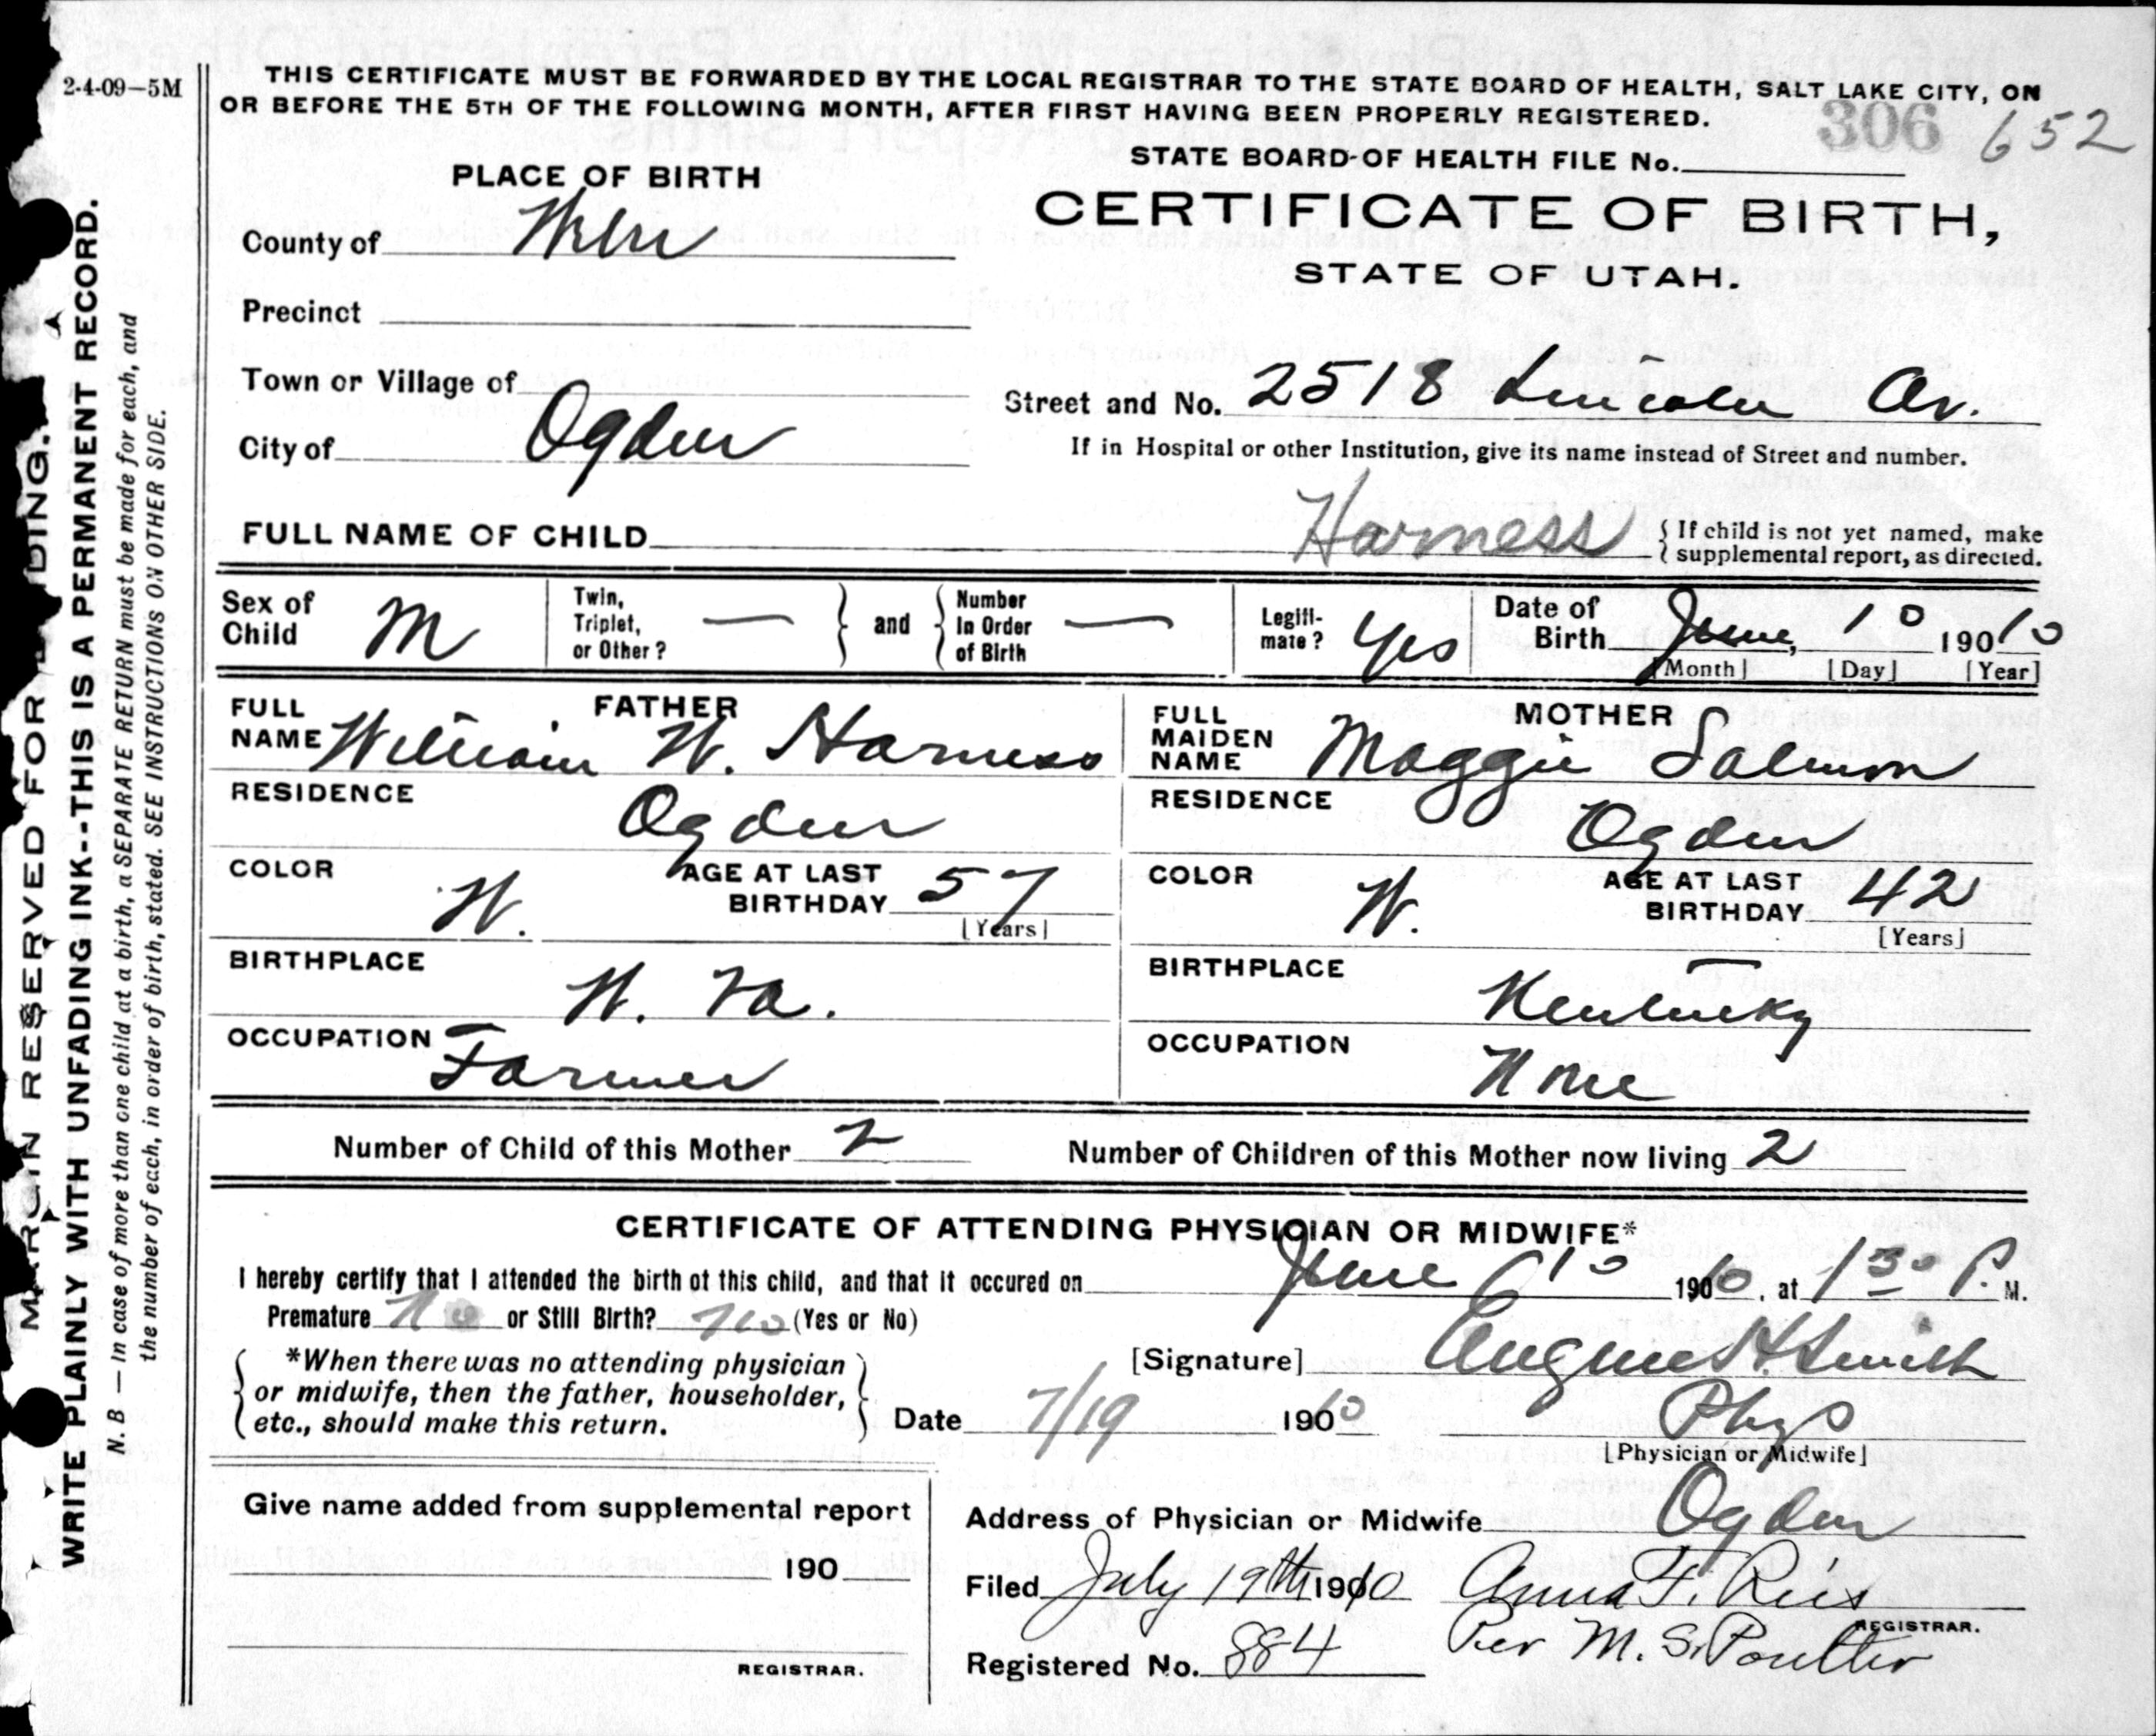 2-4-09—5M
THIS CERTIFICATE MUST BE FORWARDED BY THE LOCAL REGISTRAR TO THE STATE BOARD OF HEALTH, SALT LAKE CITY, ON
OR BEFORE THE 5TH OF THE FOLLOWING MONTH, AFTER FIRST HAVING BEEN PROPERLY REGISTERED.
306 652
STATE BOARD OF HEALTH FILE No.
PLACE OF BIRTH
CERTIFICATE OF BIRTH,
STATE OF UTAH.
County of Weber
Precinct
Town or Village of
Street and No. 2518 Lincoln Av.
City of Ogden
If in Hospital or other Institution, give its name instead of Street and number.
FULL NAME OF CHILD Harness
If child is not yet named, make
supplemental report, as directed.
Sex of Child M
Twin, Triplet, or Other? —
and
Number In Order of Birth —
Legiti-mate? Yes
Date of Birth June, 10 19010
[Month] [Day] [Year]
FATHER
FULL NAME William W. Harness
RESIDENCE Ogden
COLOR W.
AGE AT LAST BIRTHDAY 57
[Years]
BIRTHPLACE W. Va.
OCCUPATION Farmer
MOTHER
FULL MAIDEN NAME Maggie Salmon
RESIDENCE Ogden
COLOR W.
AGE AT LAST BIRTHDAY 42
[Years]
BIRTHPLACE Kentucky
OCCUPATION None
Number of Child of this Mother 2
Number of Children of this Mother now living 2
CERTIFICATE OF ATTENDING PHYSICIAN OR MIDWIFE*
I hereby certify that I attended the birth of this child, and that it occured on June 10 1910, at 1 30 P. M.
Premature No or Still Birth? No (Yes or No)
*When there was no attending physician
or midwife, then the father, householder,
etc., should make this return.
[Signature] Eugene H. Smith
Date 7/19 1900
Phys
[Physician or Midwife]
Give name added from supplemental report
190
REGISTRAR.
Address of Physician or Midwife Ogden
Filed July 19th 1910 Anna F. Reis
REGISTRAR.
Registered No. 884 Per M. S. Poulter
MARGIN RESERVED FOR DING.
WRITE PLAINLY WITH UNFADING INK--THIS IS A PERMANENT RECORD.
N. B — In case of more than one child at a birth, a SEPARATE RETURN must be made for each, and
the number of each, in order of birth, stated. SEE INSTRUCTIONS ON OTHER SIDE.